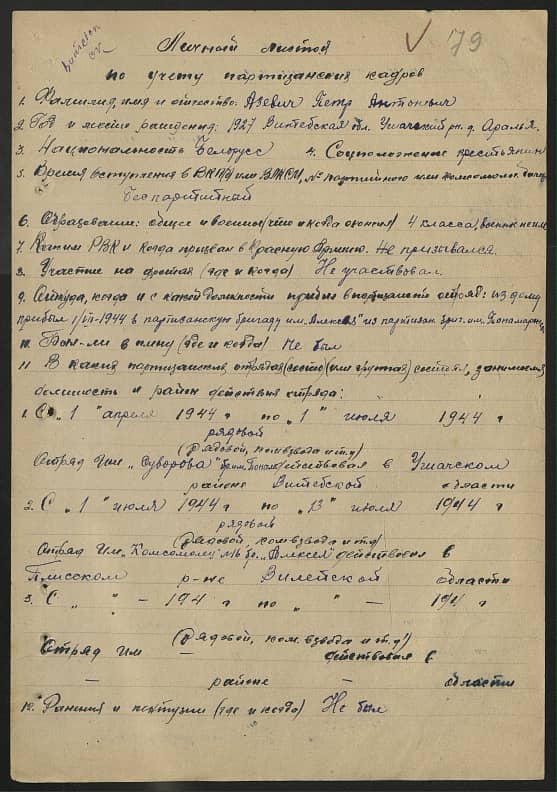 79
Личный листок
по учету партизанских кадров
1. Фамилия, имя и отчество: Азевич Петр Антонович
2. Год и место рождения: 1927 Витебская обл. Ушачский рн. д.
3. Национальность Белорусс 4. Соцположение крестьянин
5. Время вступления в ВКП(б) или ВЛКСМ, № партийного или комсомол.
Беспартийный
6. Образование: общее и военное (что и когда окончил) 4 класса, военное не им
7. Каким РВК и когда призван в Красную Армию. Не призывался.
8. Участие на фронтах (где и когда) Не участвовал.
9. Откуда, когда и с какой должности прибыл в партизанск. отряд: из дому
прибыл 1/VII-1944 в партизанскую бригаду им. Алексея из партизан. бриг. им. Пономаренко
10. Был-ли в плену (где и когда) Не был
11. В каких партизанских отрядах (соед) (или группах) состоял, занимаемая
должность и район действия отряда:
1. С „1" апреля 1944 г по „1" июля 1944 г
рядовой
(рядовой, ком. взвода и т.д)
Отряд им „Суворова" бр. им. Поном. действовал в Ушачском
районе Витебской области
2. С „1" июля 1944 г по „13" июля 1944 г
рядовой
(рядовой, ком. взвода и т.д)
Отряд им. „Комсомолец" бр. „Алексея" действовал в
Плисском р-не Вилейской области
3. С „ " – 194 г по „ " – 194 г
(рядовой, ком. взвода и т.д)
Отряд им – действовал в
– районе – области
12. Ранения и контузии (где и когда) Не был